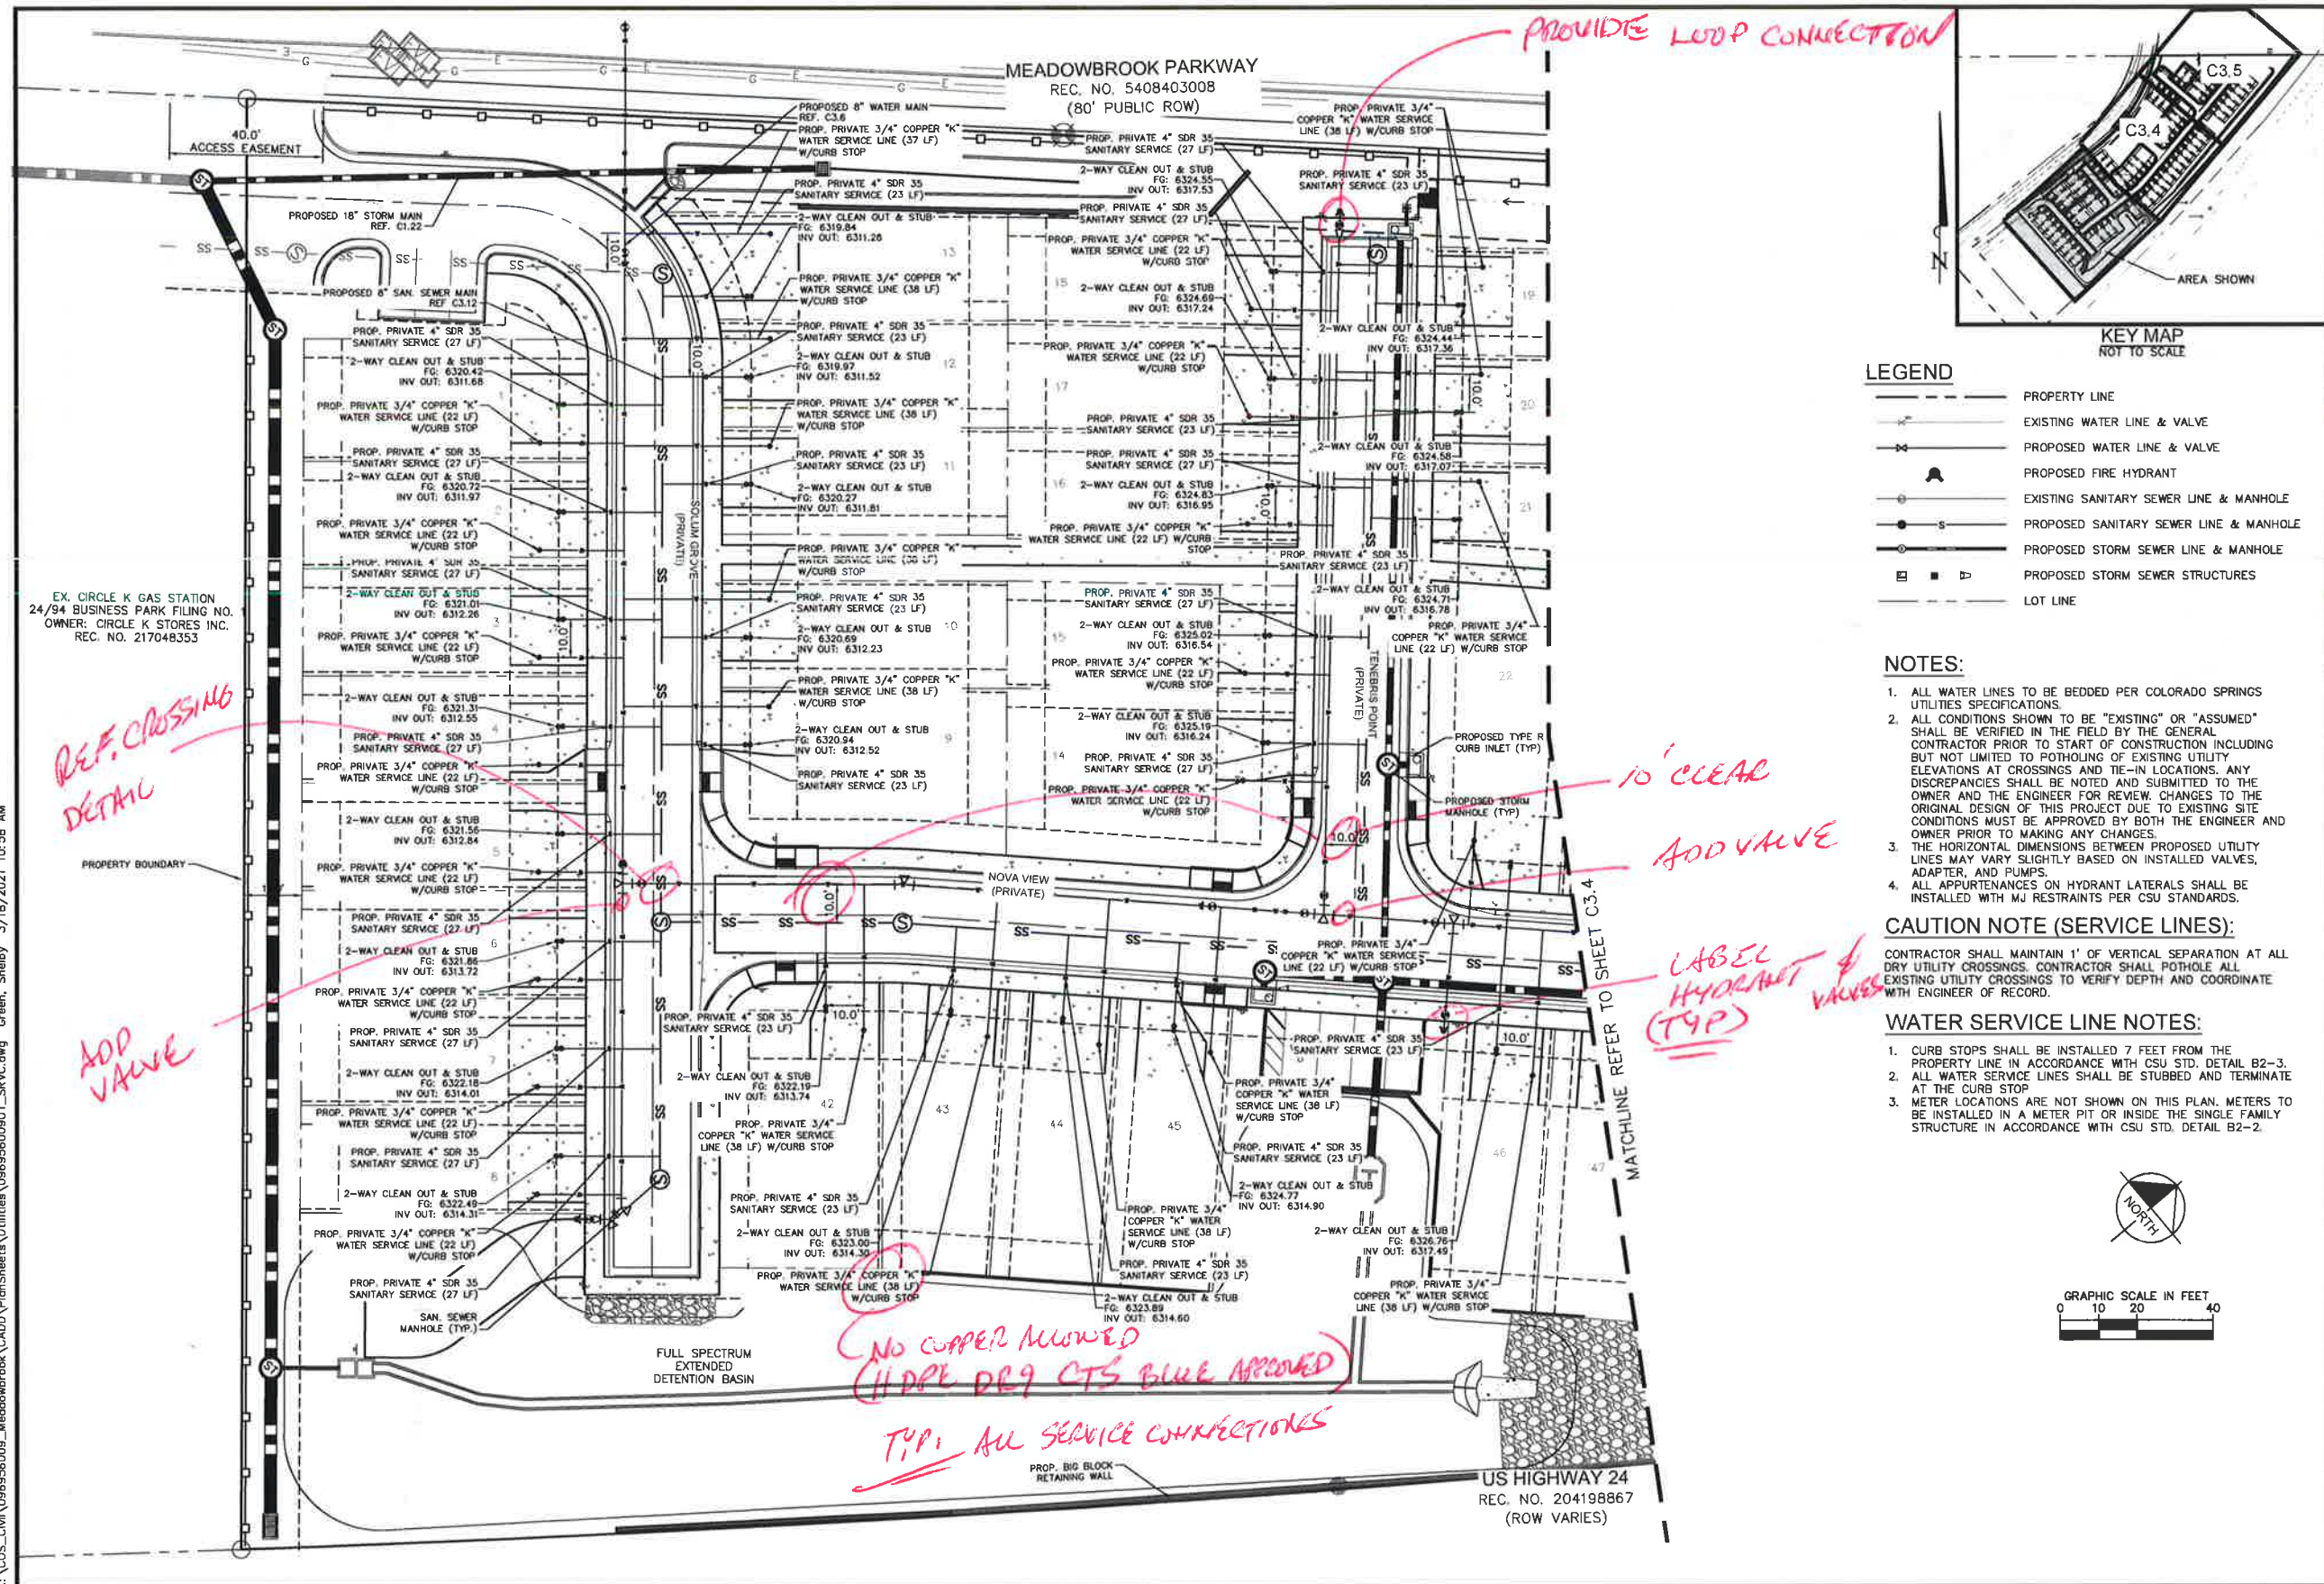 PROVIDE LOOP CONNECTION
MEADOWBROOK PARKWAY
REC. NO. 5408403008
(80' PUBLIC ROW)
40.0'
ACCESS EASEMENT
PROPOSED 18" STORM MAIN
REF. C1.22
PROPOSED 8" SAN. SEWER MAIN
REF C3.12
PROPOSED 8" WATER MAIN
REF. C3.6
PROP. PRIVATE 3/4" COPPER "K"
WATER SERVICE LINE (37 LF)
W/CURB STOP
PROP. PRIVATE 4" SDR 35
SANITARY SERVICE (23 LF)
2-WAY CLEAN OUT & STUB
FG: 6319.84
INV OUT: 6311.26
13
PROP. PRIVATE 3/4" COPPER "K"
WATER SERVICE LINE (38 LF)
W/CURB STOP
PROP. PRIVATE 4" SDR 35
SANITARY SERVICE (23 LF)
2-WAY CLEAN OUT & STUB
FG: 6319.97
INV OUT: 6311.52
12
PROP. PRIVATE 3/4" COPPER "K"
WATER SERVICE LINE (38 LF)
W/CURB STOP
PROP. PRIVATE 4" SDR 35
SANITARY SERVICE (23 LF)
11
2-WAY CLEAN OUT & STUB
FG: 6320.27
INV OUT: 6311.81
PROP. PRIVATE 3/4" COPPER "K"
W/CURB STOP
PROP. PRIVATE 4" SDR 35
SANITARY SERVICE (23 LF)
2-WAY CLEAN OUT & STUB
FG: 6320.69
INV OUT: 6312.23
10
PROP. PRIVATE 3/4" COPPER "K"
WATER SERVICE LINE (38 LF)
W/CURB STOP
2-WAY CLEAN OUT & STUB
FG: 6320.94
INV OUT: 6312.52
9
PROP. PRIVATE 4" SDR 35
SANITARY SERVICE (23 LF)
PROP. PRIVATE 4" SDR 35
SANITARY SERVICE (27 LF)
2-WAY CLEAN OUT & STUB
FG: 6320.42
INV OUT: 6311.68
PROP. PRIVATE 3/4" COPPER "K"
WATER SERVICE LINE (22 LF)
W/CURB STOP
PROP. PRIVATE 4" SDR 35
SANITARY SERVICE (27 LF)
2-WAY CLEAN OUT & STUB
FG: 6320.72
INV OUT: 6311.97
PROP. PRIVATE 3/4" COPPER "K"
WATER SERVICE LINE (22 LF)
W/CURB STOP
PROP. PRIVATE 4" SDR 35
SANITARY SERVICE (27 LF)
2-WAY CLEAN OUT & STUB
FG: 6321.01
INV OUT: 6312.26
3
PROP. PRIVATE 3/4" COPPER "K"
WATER SERVICE LINE (22 LF)
W/CURB STOP
2-WAY CLEAN OUT & STUB
FG: 6321.31
INV OUT: 6312.55
4
PROP. PRIVATE 4" SDR 35
SANITARY SERVICE (27 LF)
PROP. PRIVATE 3/4" COPPER "K"
WATER SERVICE LINE (22 LF)
W/CURB STOP
2-WAY CLEAN OUT & STUB
FG: 6321.56
INV OUT: 6312.84
5
PROP. PRIVATE 3/4" COPPER "K"
WATER SERVICE LINE (22 LF)
W/CURB STOP
PROP. PRIVATE 4" SDR 35
SANITARY SERVICE (27 LF)
2-WAY CLEAN OUT & STUB
FG: 6321.86
INV OUT: 6313.72
6
PROP. PRIVATE 3/4" COPPER "K"
WATER SERVICE LINE (22 LF)
W/CURB STOP
PROP. PRIVATE 4" SDR 35
SANITARY SERVICE (27 LF)
2-WAY CLEAN OUT & STUB
FG: 6322.18
INV OUT: 6314.01
7
PROP. PRIVATE 3/4" COPPER "K"
WATER SERVICE LINE (22 LF)
W/CURB STOP
PROP. PRIVATE 4" SDR 35
SANITARY SERVICE (27 LF)
8
2-WAY CLEAN OUT & STUB
FG: 6322.49
INV OUT: 6314.31
PROP. PRIVATE 3/4" COPPER "K"
WATER SERVICE LINE (22 LF)
W/CURB STOP
PROP. PRIVATE 4" SDR 35
SANITARY SERVICE (27 LF)
SAN. SEWER
MANHOLE (TYP.)
EX. CIRCLE K GAS STATION
24/94 BUSINESS PARK FILING NO. 1
OWNER: CIRCLE K STORES INC.
REC. NO. 217048353
REF. CROSSING
DETAIL
PROPERTY BOUNDARY
ADD
VALVE
SOLUM GROVE
(PRIVATE)
NOVA VIEW
(PRIVATE)
TENEBRIS POINT
(PRIVATE)
PROP. PRIVATE 4" SDR 35
SANITARY SERVICE (27 LF)
2-WAY CLEAN OUT & STUB
FG: 6324.55
INV OUT: 6317.53
PROP. PRIVATE 4" SDR 35
SANITARY SERVICE (27 LF)
PROP. PRIVATE 3/4" COPPER "K"
WATER SERVICE LINE (22 LF)
W/CURB STOP
2-WAY CLEAN OUT & STUB
FG: 6324.69
INV OUT: 6317.24
PROP. PRIVATE 3/4" COPPER "K"
WATER SERVICE LINE (22 LF)
W/CURB STOP
17
PROP. PRIVATE 4" SDR 35
SANITARY SERVICE (23 LF)
PROP. PRIVATE 4" SDR 35
SANITARY SERVICE (27 LF)
16
2-WAY CLEAN OUT & STUB
FG: 6324.83
INV OUT: 6316.95
PROP. PRIVATE 3/4" COPPER "K"
WATER SERVICE LINE (22 LF) W/CURB
STOP
PROP. PRIVATE 4" SDR 35
SANITARY SERVICE (27 LF)
15
2-WAY CLEAN OUT & STUB
FG: 6325.02
INV OUT: 6316.54
PROP. PRIVATE 3/4" COPPER "K"
WATER SERVICE LINE (22 LF)
W/CURB STOP
2-WAY CLEAN OUT & STUB
FG: 6325.19
INV OUT: 6316.24
14
PROP. PRIVATE 4" SDR 35
SANITARY SERVICE (27 LF)
PROP. PRIVATE 3/4" COPPER "K"
WATER SERVICE LINE (22 LF)
W/CURB STOP
PROP. PRIVATE 3/4"
COPPER "K" WATER SERVICE
LINE (38 LF) W/CURB STOP
PROP. PRIVATE 4" SDR 35
SANITARY SERVICE (23 LF)
19
2-WAY CLEAN OUT & STUB
FG: 6324.44
INV OUT: 6317.36
20
2-WAY CLEAN OUT & STUB
FG: 6324.58
INV OUT: 6317.07
21
PROP. PRIVATE 4" SDR 35
SANITARY SERVICE (23 LF)
2-WAY CLEAN OUT & STUB
FG: 6324.71
INV OUT: 6316.78
PROP. PRIVATE 3/4"
COPPER "K" WATER SERVICE
LINE (22 LF) W/CURB STOP
22
PROPOSED TYPE R
CURB INLET (TYP)
PROPOSED STORM
MANHOLE (TYP)
10' CLEAR
ADD VALVE
LABEL
HYDRANT &
VALVES
(TYP)
PROP. PRIVATE 3/4"
COPPER "K" WATER SERVICE
LINE (22 LF) W/CURB STOP
PROP. PRIVATE 4" SDR 35
SANITARY SERVICE (23 LF)
10.0'
2-WAY CLEAN OUT & STUB
FG: 6322.19
INV OUT: 6313.74
42
43
44
45
46
47
PROP. PRIVATE 3/4"
COPPER "K" WATER SERVICE
LINE (38 LF) W/CURB STOP
PROP. PRIVATE 4" SDR 35
SANITARY SERVICE (23 LF)
2-WAY CLEAN OUT & STUB
FG: 6323.00
INV OUT: 6314.30
PROP. PRIVATE 3/4" COPPER "K"
WATER SERVICE LINE (38 LF)
W/CURB STOP
PROP. PRIVATE 4" SDR 35
SANITARY SERVICE (23 LF)
PROP. PRIVATE 3/4"
COPPER "K" WATER
SERVICE LINE (38 LF)
W/CURB STOP
PROP. PRIVATE 4" SDR 35
SANITARY SERVICE (23 LF)
2-WAY CLEAN OUT & STUB
FG: 6324.77
INV OUT: 6314.90
PROP. PRIVATE 3/4"
COPPER "K" WATER
SERVICE LINE (38 LF)
W/CURB STOP
PROP. PRIVATE 4" SDR 35
SANITARY SERVICE (23 LF)
2-WAY CLEAN OUT & STUB
FG: 6323.89
INV OUT: 6314.60
2-WAY CLEAN OUT & STUB
FG: 6326.76
INV OUT: 6317.49
PROP. PRIVATE 3/4"
COPPER "K" WATER SERVICE
LINE (38 LF) W/CURB STOP
NO COPPER ALLOWED
(HDPE DR9 CTS BLUE APPROVED)
TYP: ALL SERVICE CONNECTIONS
FULL SPECTRUM
EXTENDED
DETENTION BASIN
PROP. BIG BLOCK
RETAINING WALL
US HIGHWAY 24
REC. NO. 204198867
(ROW VARIES)
MATCHLINE REFER TO SHEET C3.4
C3.5
C3.4
AREA SHOWN
KEY MAP
NOT TO SCALE
N
LEGEND
PROPERTY LINE
EXISTING WATER LINE & VALVE
PROPOSED WATER LINE & VALVE
PROPOSED FIRE HYDRANT
EXISTING SANITARY SEWER LINE & MANHOLE
PROPOSED SANITARY SEWER LINE & MANHOLE
PROPOSED STORM SEWER LINE & MANHOLE
PROPOSED STORM SEWER STRUCTURES
LOT LINE
NOTES:
1. ALL WATER LINES TO BE BEDDED PER COLORADO SPRINGS
UTILITIES SPECIFICATIONS.
2. ALL CONDITIONS SHOWN TO BE "EXISTING" OR "ASSUMED"
SHALL BE VERIFIED IN THE FIELD BY THE GENERAL
CONTRACTOR PRIOR TO START OF CONSTRUCTION INCLUDING
BUT NOT LIMITED TO POTHOLING OF EXISTING UTILITY
ELEVATIONS AT CROSSINGS AND TIE-IN LOCATIONS. ANY
DISCREPANCIES SHALL BE NOTED AND SUBMITTED TO THE
OWNER AND THE ENGINEER FOR REVIEW. CHANGES TO THE
ORIGINAL DESIGN OF THIS PROJECT DUE TO EXISTING SITE
CONDITIONS MUST BE APPROVED BY BOTH THE ENGINEER AND
OWNER PRIOR TO MAKING ANY CHANGES.
3. THE HORIZONTAL DIMENSIONS BETWEEN PROPOSED UTILITY
LINES MAY VARY SLIGHTLY BASED ON INSTALLED VALVES,
ADAPTER, AND PUMPS.
4. ALL APPURTENANCES ON HYDRANT LATERALS SHALL BE
INSTALLED WITH MJ RESTRAINTS PER CSU STANDARDS.
CAUTION NOTE (SERVICE LINES):
CONTRACTOR SHALL MAINTAIN 1' OF VERTICAL SEPARATION AT ALL
DRY UTILITY CROSSINGS. CONTRACTOR SHALL POTHOLE ALL
EXISTING UTILITY CROSSINGS TO VERIFY DEPTH AND COORDINATE
WITH ENGINEER OF RECORD.
WATER SERVICE LINE NOTES:
1. CURB STOPS SHALL BE INSTALLED 7 FEET FROM THE
PROPERTY LINE IN ACCORDANCE WITH CSU STD. DETAIL B2-3.
2. ALL WATER SERVICE LINES SHALL BE STUBBED AND TERMINATE
AT THE CURB STOP
3. METER LOCATIONS ARE NOT SHOWN ON THIS PLAN. METERS TO
BE INSTALLED IN A METER PIT OR INSIDE THE SINGLE FAMILY
STRUCTURE IN ACCORDANCE WITH CSU STD. DETAIL B2-2.
NORTH
GRAPHIC SCALE IN FEET
0 10 20 40